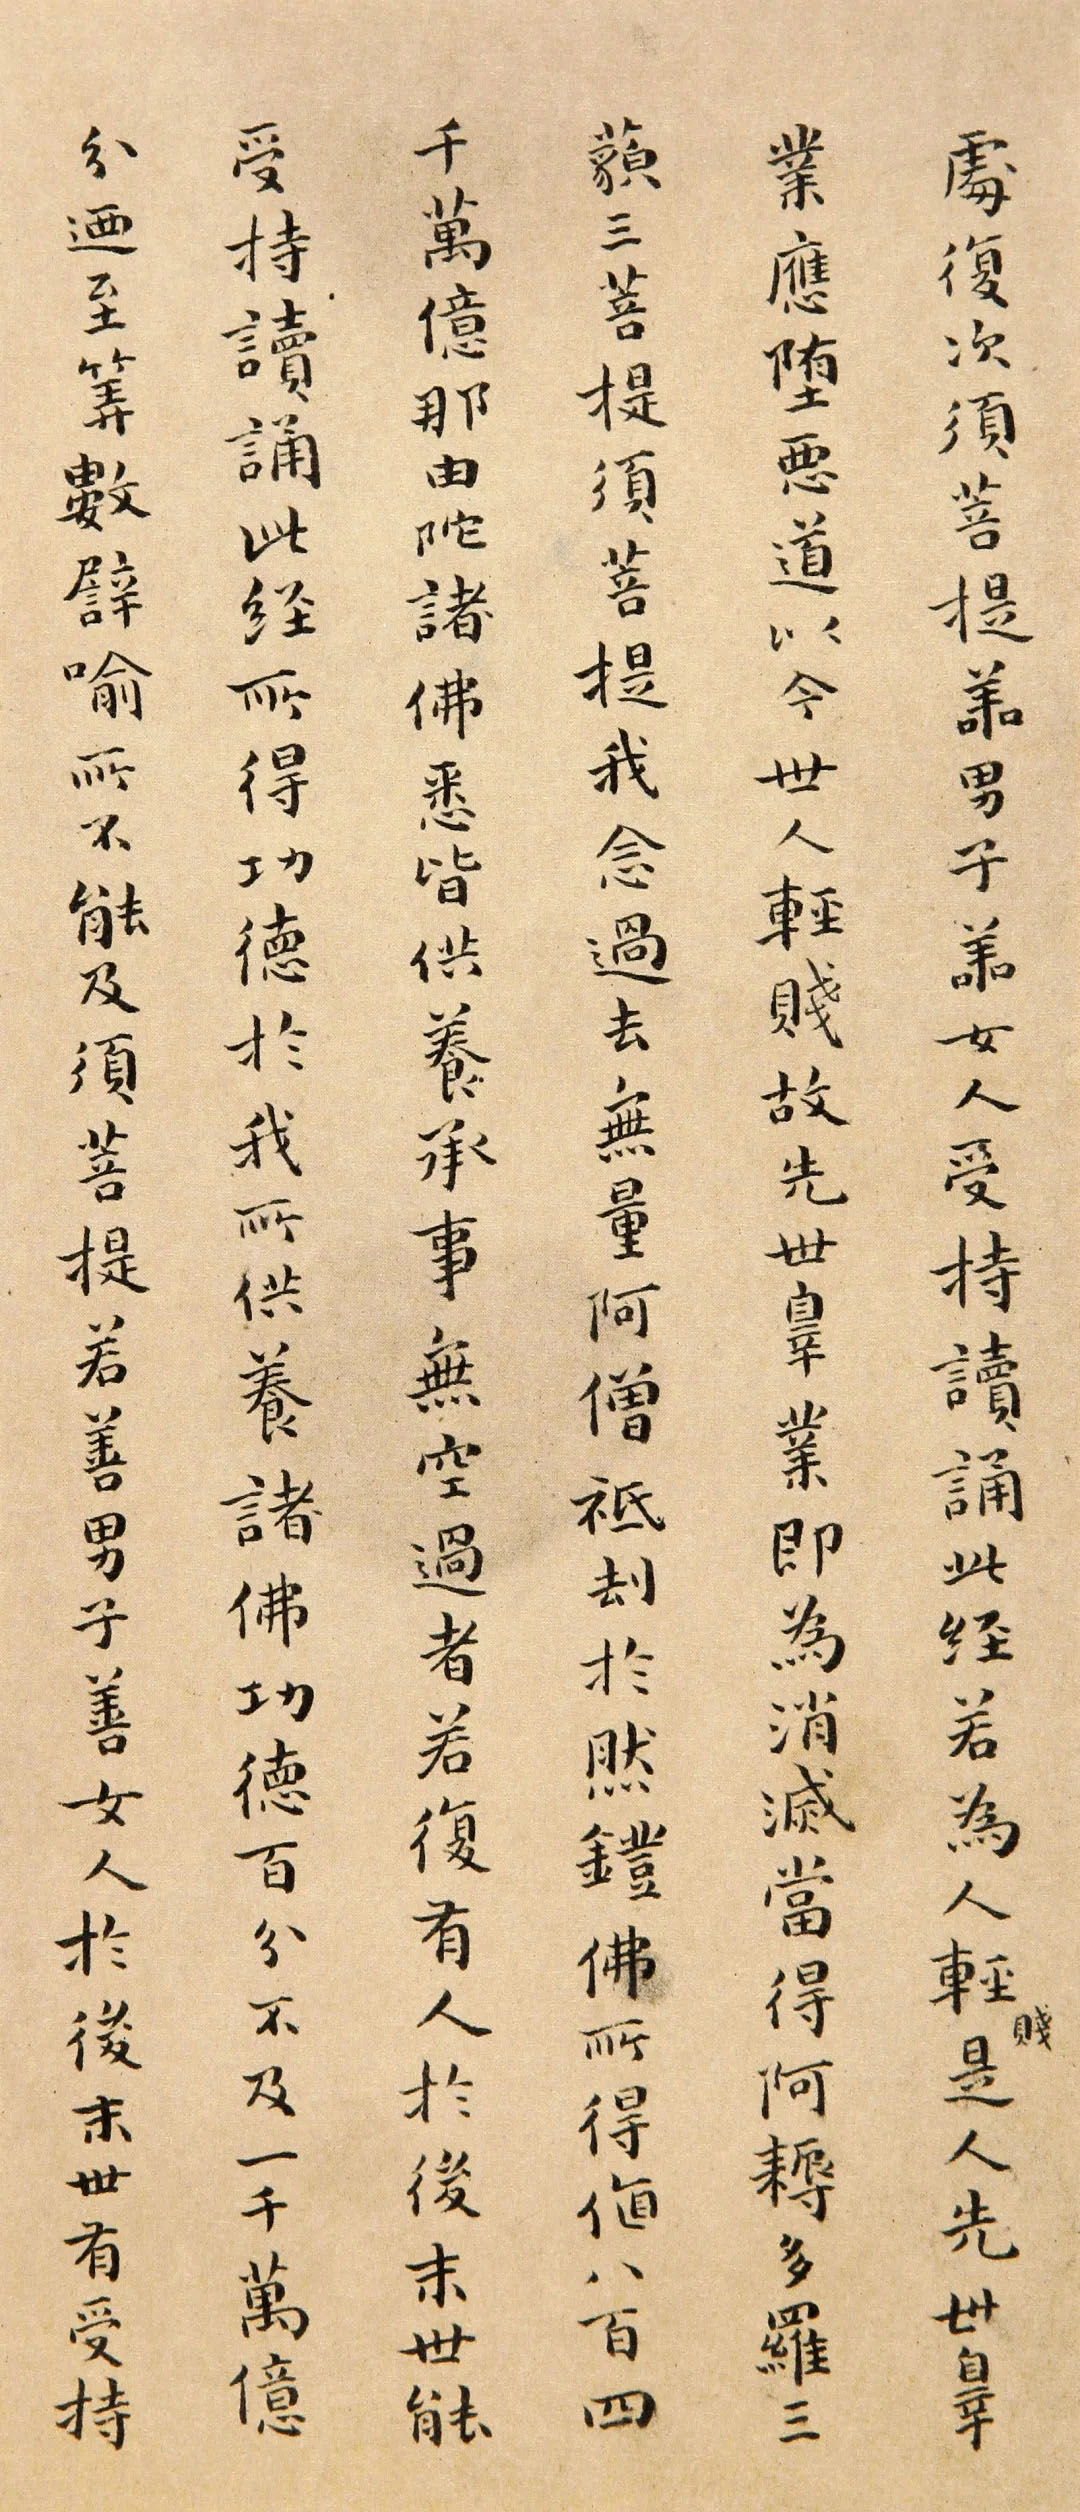 處復次須菩提善男子善女人受持讀誦此經若為人輕賤是人先世辠
業應墮惡道以今世人輕賤故先世辠業即為消滅當得阿耨多羅三
藐三菩提須菩提我念過去無量阿僧祗刦於然鐙佛所得值八百四
千萬億那由陀諸佛悉皆供養承事無空過者若復有人於後末世能
受持讀誦此經所得功德於我所供養諸佛功德百分不及一千萬億
分迺至筭數譬喻所不能及須菩提若善男子善女人於後末世有受持